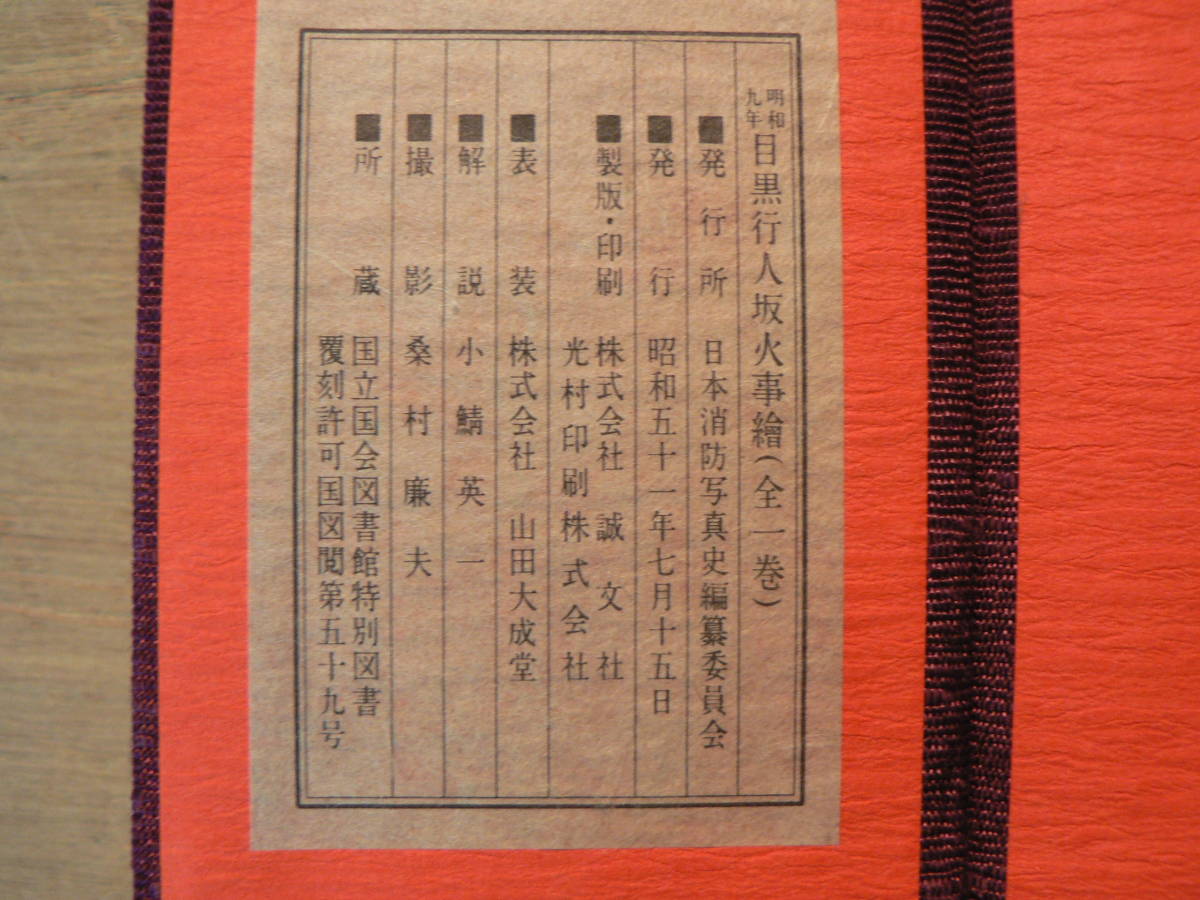 明和九年目黒行人坂火事繪(全一巻)
■発行所 日本消防写真史編纂委員会
■発行 昭和五十一年七月十五日
■製版・印刷 株式会社 誠文社
光村印刷株式会社
■表装 株式会社 山田大成堂
■解説 小鯖英一
■撮影 桑村廉夫
■所蔵 国立国会図書館特別図書
覆刻許可国図閲第五十九号